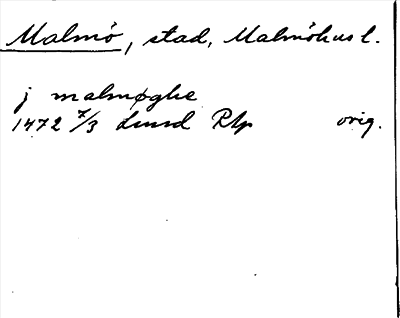 Malmö, stad, Malmöhus l.
j malmøghe
1472 7/3 Lund RAp orig.